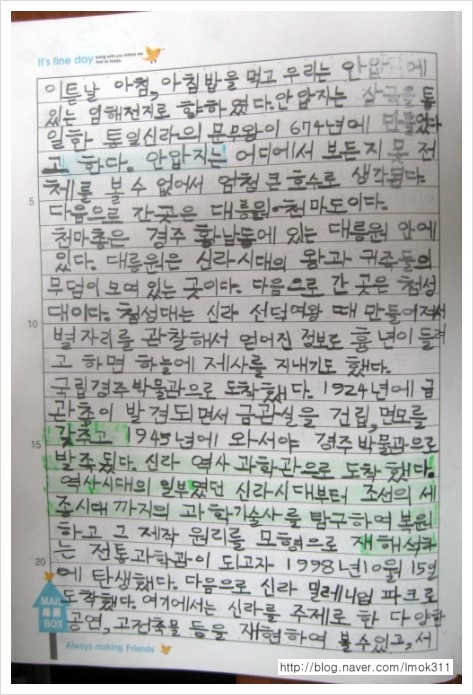 It's fine day being with you makes me feel so happy
이튿날 아침, 아침밥을 먹고 우리는 안압지에
있는 임해전지로 향하였다. 안압지는 삼국을 통
일한 통일신라의 문무왕이 674년에 만들었다
고 한다. 안압지는 어디에서 보든지 못 전
체를 볼 수 없어서 엄청 큰 호수로 생각된다.
5
다음으로 간곳은 대릉원·천마도이다.
천마총은 경주 황남동에 있는 대릉원 안에
있다. 대릉원은 신라시대의 왕과 귀족들의
무덤이 모여 있는 곳이다. 다음으로 간 곳은 첨성
대이다. 첨성대는 신라 선덕여왕 때 만들어져서
10
별자리를 관찰해서 얻어진 정보로 흉년이 들려
고 하면 하늘에 제사를 지내기도 했다.
국립경주박물관으로 도착했다. 1924년에 금
관총이 발견되면서 금관실을 건립, 면모를
갖추고 1945년에 와서야 경주박물관으로
15
발족됬다. 신라 역사 과학관으로 도착했다.
역사시대의 일부였던 신라시대부터 조선의 세
종시대 까지의 과학기술사를 탐구하여 복원
하고 그 제작 원리를 모형으로 재해석하
는 전통과학관이 되고자 1998년 10월 15일
20
에 탄생했다. 다음으로 신라 밀레니엄 파크로
도착했다. 여기에서는 신라를 주제로 한 다양한
공연, 고전축물 등을 재현하여 볼수있고, 서
MAIL BOX
Always making Friends
http://blog.naver.com/lmok311